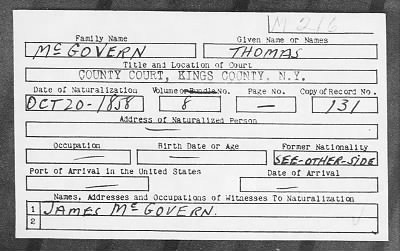 M 216
Family Name Given Name or Names
McGOVERN THOMAS
Title and Location of Court
COUNTY COURT, KINGS COUNTY, N.Y.
Date of Naturalization Volume or Bundle No. Page No. Copy of Record No.
OCT 20-1858 8 — 131
Address of Naturalized Person
—
Occupation Birth Date or Age Former Nationality
— — SEE-OTHER-SIDE
Port of Arrival in the United States Date of Arrival
— —
Names, Addresses and Occupations of Witnesses To Naturalization
1 JAMES McGOVERN.
2